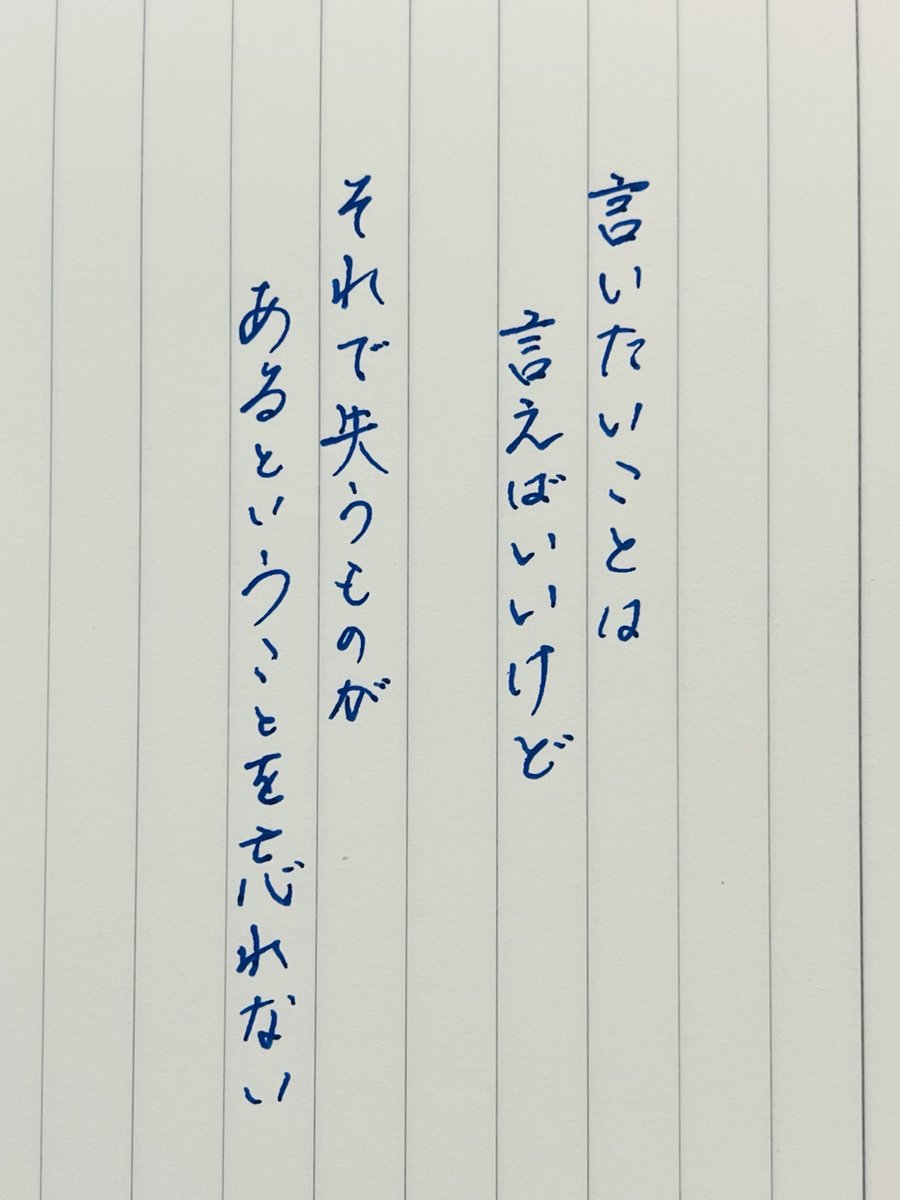 言いたいことは
言えばいいけど
それで失うものが
あるということを忘れない